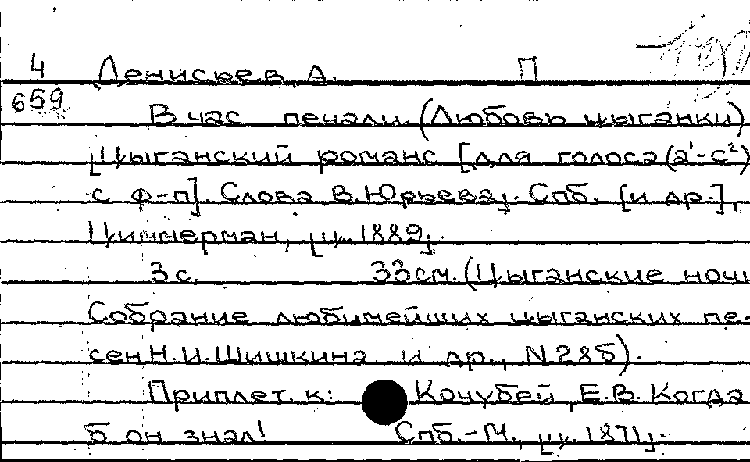 4 Денисьев, А. П
659
В час печали. (Любовь цыганки).
Цыганский романс [для голоса (а¹-с²)
с ф-п]. Слова В. Юрьева. Спб. [и др.],
Циммерман, ц. 1889.
3 с. 33 см. (Цыганские ночи.
Собрание любимейших цыганских пе-
сен Н.И. Шишкина и др., N 285).
Приплет. к: Кочубей, Е.В. Когда
б он знал! Спб.-М., ц. 1871.